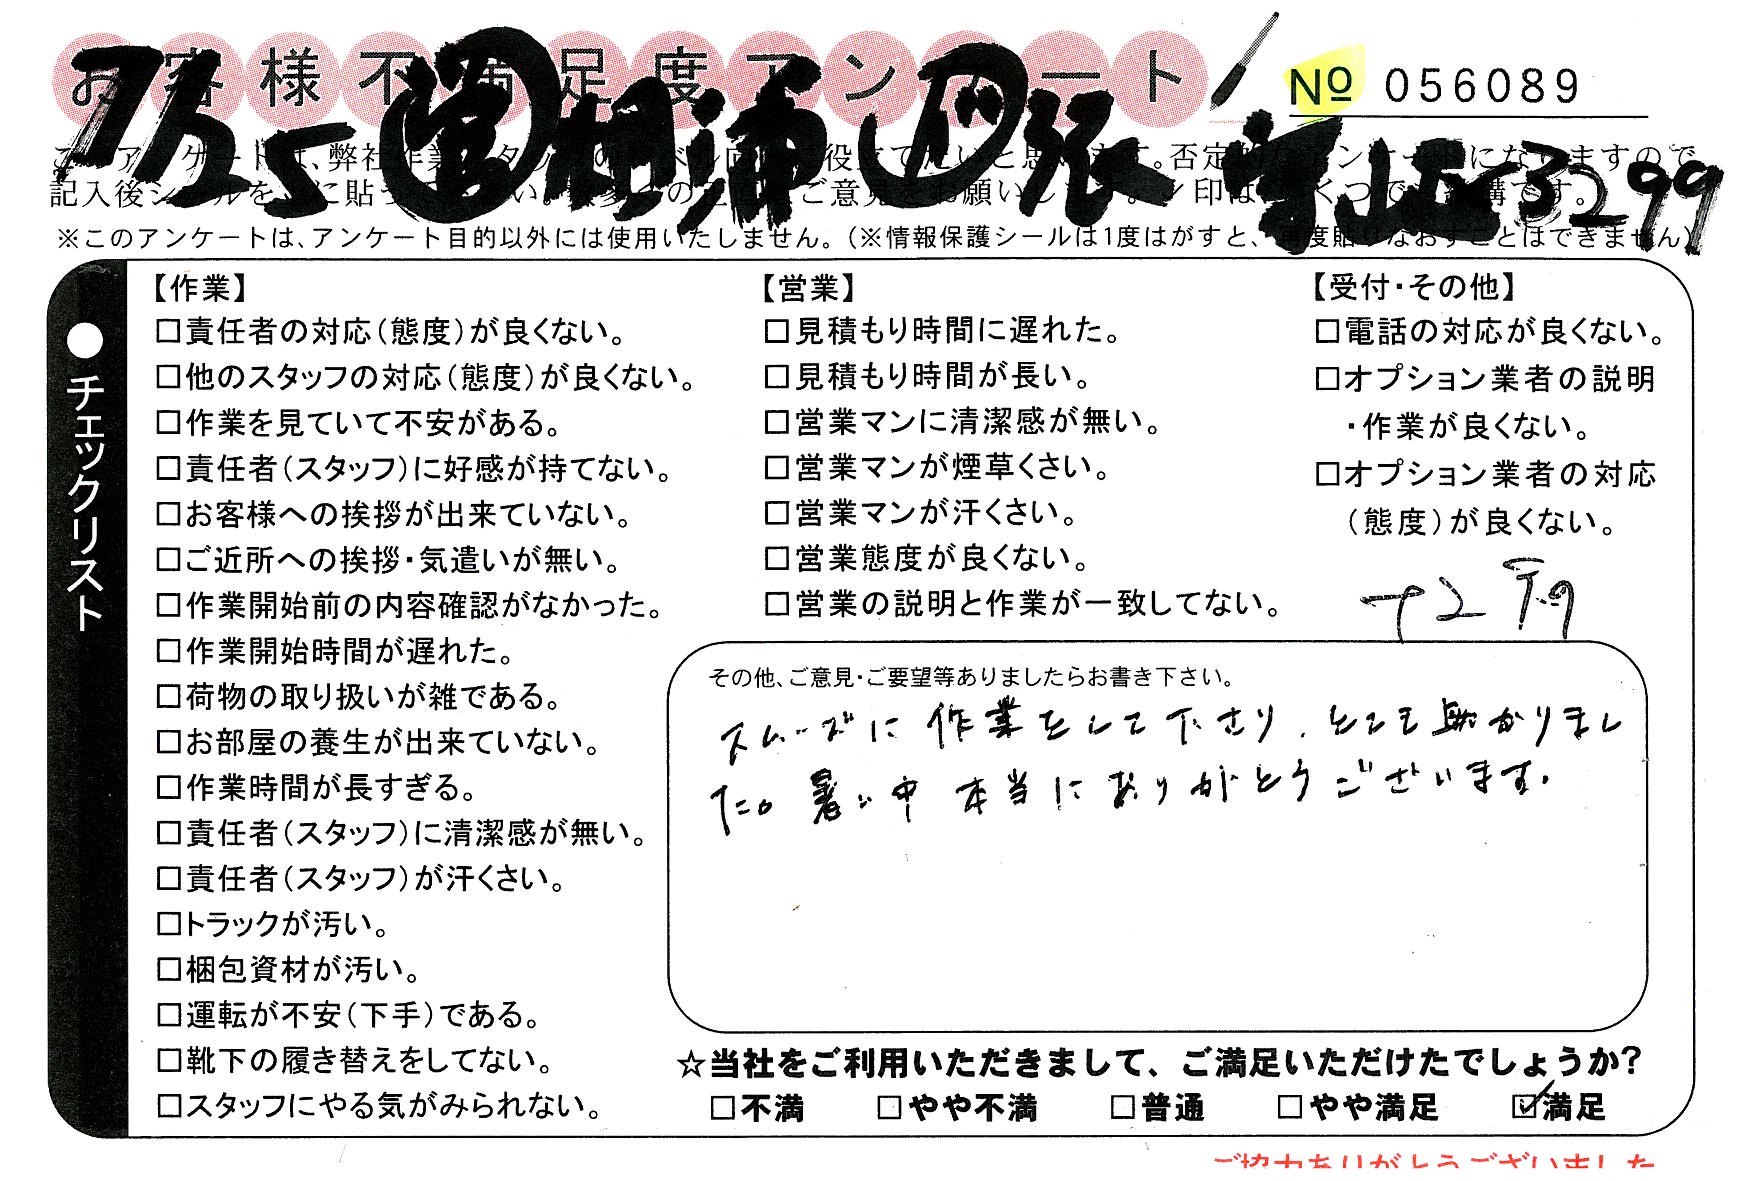 お客様不満足度アンケート
№ 056089
7/25
3299
※このアンケートは、アンケート目的以外には使用いたしません。(※情報保護シールは1度はがすと、再度貼りなおすことはできません)
●チェックリスト
【作業】
□責任者の対応(態度)が良くない。
□他のスタッフの対応(態度)が良くない。
□作業を見ていて不安がある。
□責任者(スタッフ)に好感が持てない。
□お客様への挨拶が出来ていない。
□ご近所への挨拶・気遣いが無い。
□作業開始前の内容確認がなかった。
□作業開始時間が遅れた。
□荷物の取り扱いが雑である。
□お部屋の養生が出来ていない。
□作業時間が長すぎる。
□責任者(スタッフ)に清潔感が無い。
□責任者(スタッフ)が汗くさい。
□トラックが汚い。
□梱包資材が汚い。
□運転が不安(下手)である。
□靴下の履き替えをしてない。
□スタッフにやる気がみられない。
【営業】
□見積もり時間に遅れた。
□見積もり時間が長い。
□営業マンに清潔感が無い。
□営業マンが煙草くさい。
□営業マンが汗くさい。
□営業態度が良くない。
□営業の説明と作業が一致してない。
【受付・その他】
□電話の対応が良くない。
□オプション業者の説明
・作業が良くない。
□オプション業者の対応
(態度)が良くない。
その他、ご意見・ご要望等ありましたらお書き下さい。
スムーズに作業をして下さり、とても助かりまし
た。暑い中本当にありがとうございます。
☆当社をご利用いただきまして、ご満足いただけたでしょうか?
□不満 □やや不満 □普通 □やや満足 ☑満足
ご協力ありがとうございました